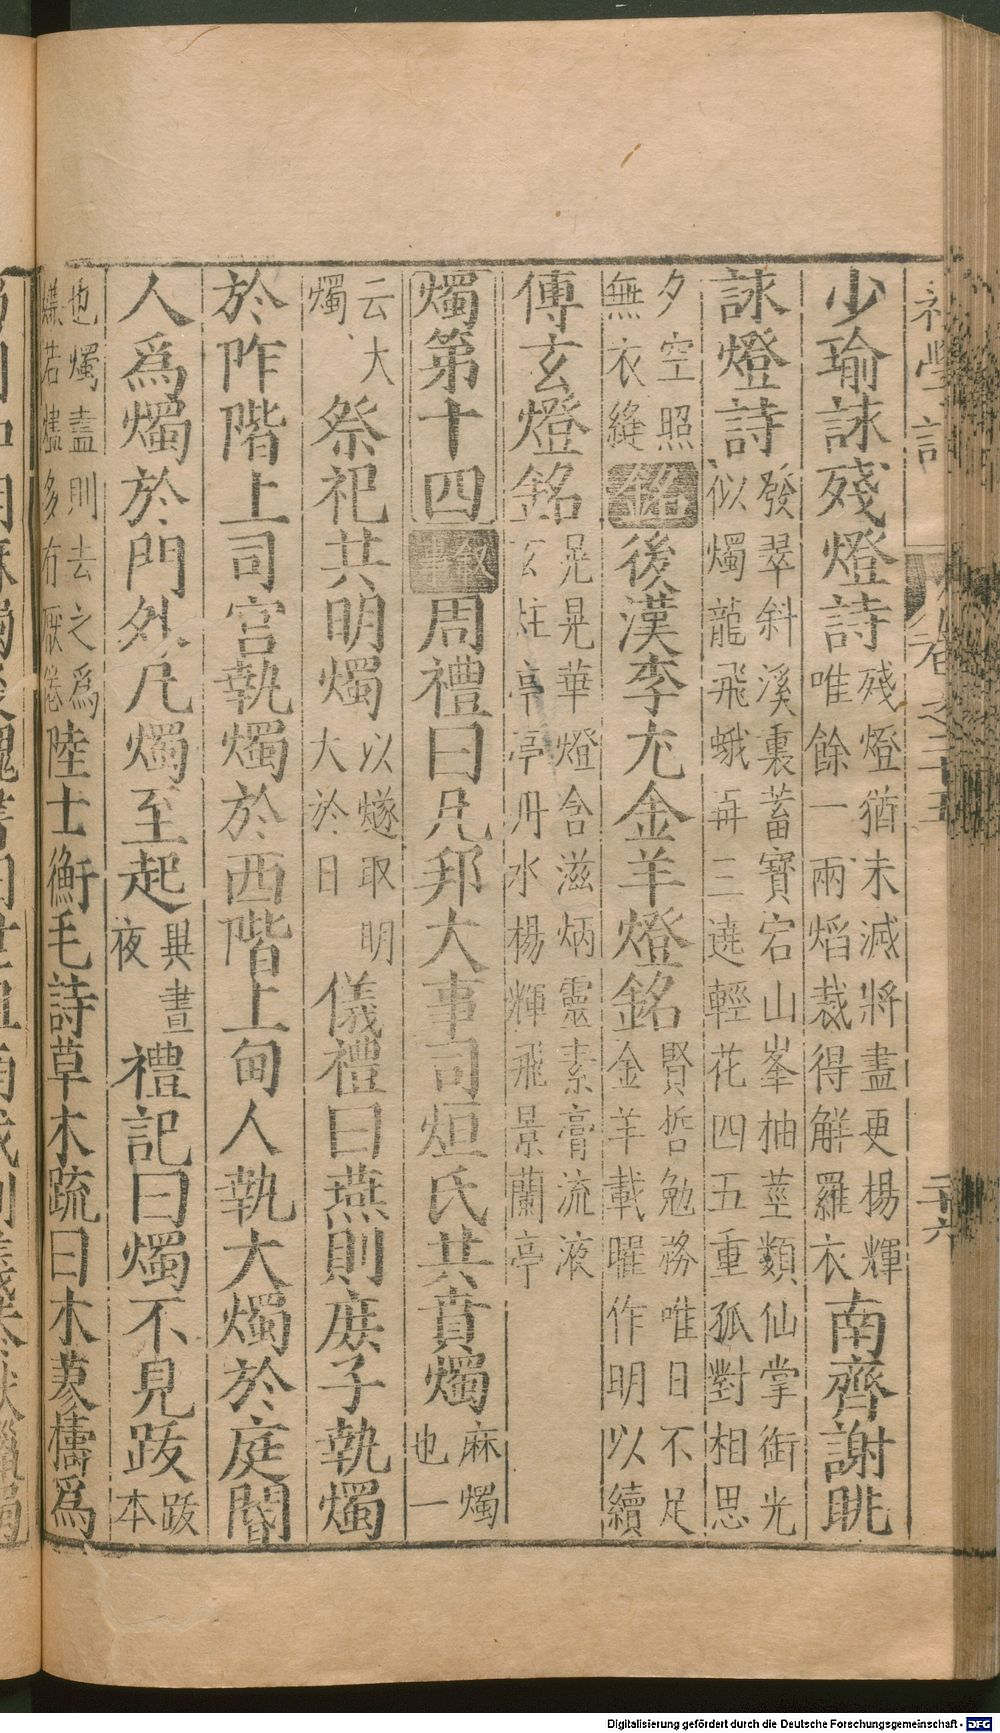 初學記 卷之二十五 二十六
少瑜詠殘燈詩殘燈猶未滅將盡更楊輝唯餘一兩焰裁得解羅衣南齊謝眺
詠燈詩發翠斜溪裏蓄寶宕山峯抽莖類仙掌銜光似燭龍飛蛾再三遶輕花四五重孤對相思
夕空照無衣縫銘後漢李尤金羊燈銘賢哲勉務唯日不足金羊載曜作明以續
傅玄燈銘晃晃華燈含滋炳靈素膏流液玄炷亭亭丹水楊輝飛景蘭亭
燭第十四敘事周禮曰凡邦大事司烜氏共蕡燭麻燭也一
云大燭祭祀共明燭以燧取明大於日儀禮曰燕則庻子執燭
於阼階上司宫執燭於西階上甸人執大燭於庭閽
人爲燭於門外凡燭至起異晝夜禮記曰燭不見跋跋本
也燭盡則去之爲嫌若燼多有厭倦陸士衡毛詩草木疏曰木蓼擣爲
Digitalisierung gefördert durch die Deutsche Forschungsgemeinschaft - DFG